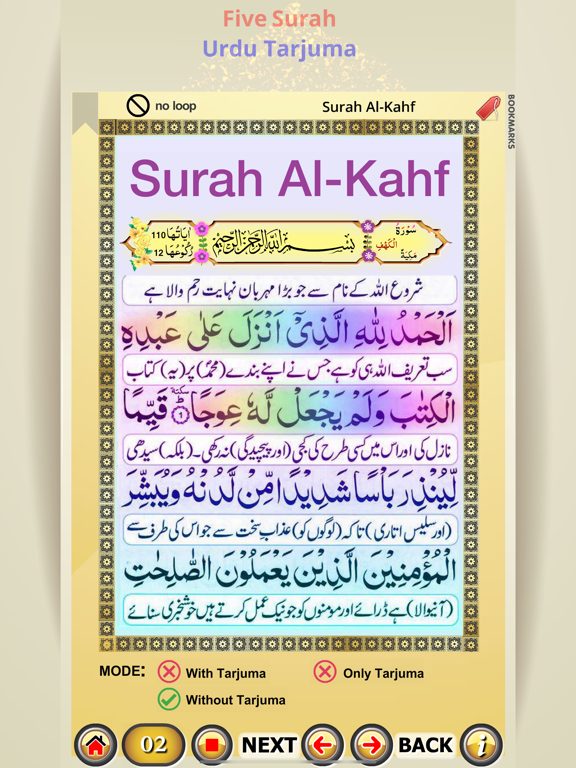 Five Surah
Urdu Tarjuma
no loop
Surah Al-Kahf
BOOKMARKS
Surah Al-Kahf
سُوْرَةُ الْكَهْفِ مَكِّيَّةٌ
بِسْمِ اللهِ الرَّحْمٰنِ الرَّحِيْمِ
اٰيَاتُهَا 110
رُكُوْعُهَا 12
شروع اللہ کے نام سے جو بڑا مہربان نہایت رحم والا ہے
اَلْحَمْدُ لِلّٰهِ الَّذِيْٓ اَنْزَلَ عَلٰى عَبْدِهِ
سب تعریف اللہ ہی کو ہے جس نے اپنے بندے (محمدؐ) پر (یہ) کتاب
الْكِتٰبَ وَلَمْ يَجْعَلْ لَّهٗ عِوَجًا ۜ ١ قَيِّمًا
نازل کی اور اس میں کسی طرح کی کجی (اور پیچیدگی) نہ رکھی۔ (بلکہ) سیدھی
لِّيُنْذِرَ بَاْسًا شَدِيْدًا مِّنْ لَّدُنْهُ وَيُبَشِّرَ
(اور سلیس اتاری) تاکہ (لوگوں کو) عذاب سخت سے جو اس کی طرف سے
الْمُؤْمِنِيْنَ الَّذِيْنَ يَعْمَلُوْنَ الصّٰلِحٰتِ
(آنیوالا) ہے ڈرائے اور مومنوں کو جو نیک عمل کرتے ہیں خوشخبری سنائے
MODE:
With Tarjuma
Only Tarjuma
Without Tarjuma
02
NEXT
BACK
i